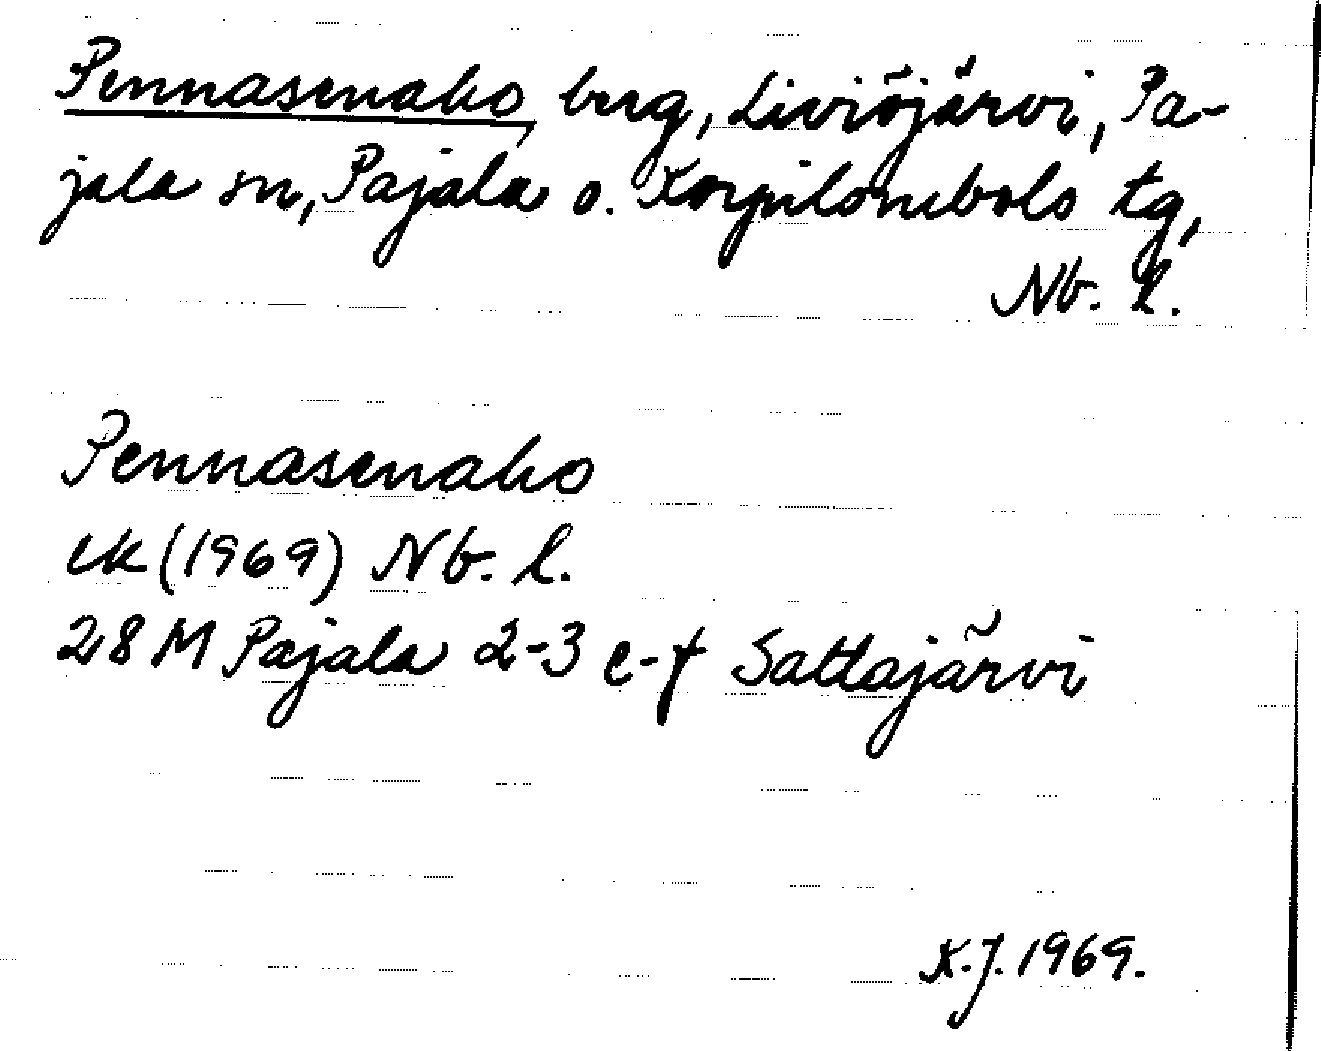 Pennasenaho, berg, Liviöjärvi, Pa-
jala sn, Pajala o. Korpilombolo tg,
Nb. l.
Pennasenaho
ek (1969) Nb. l.
28 M Pajala 2-3 e-f Sattajärvi
K.J. 1969.